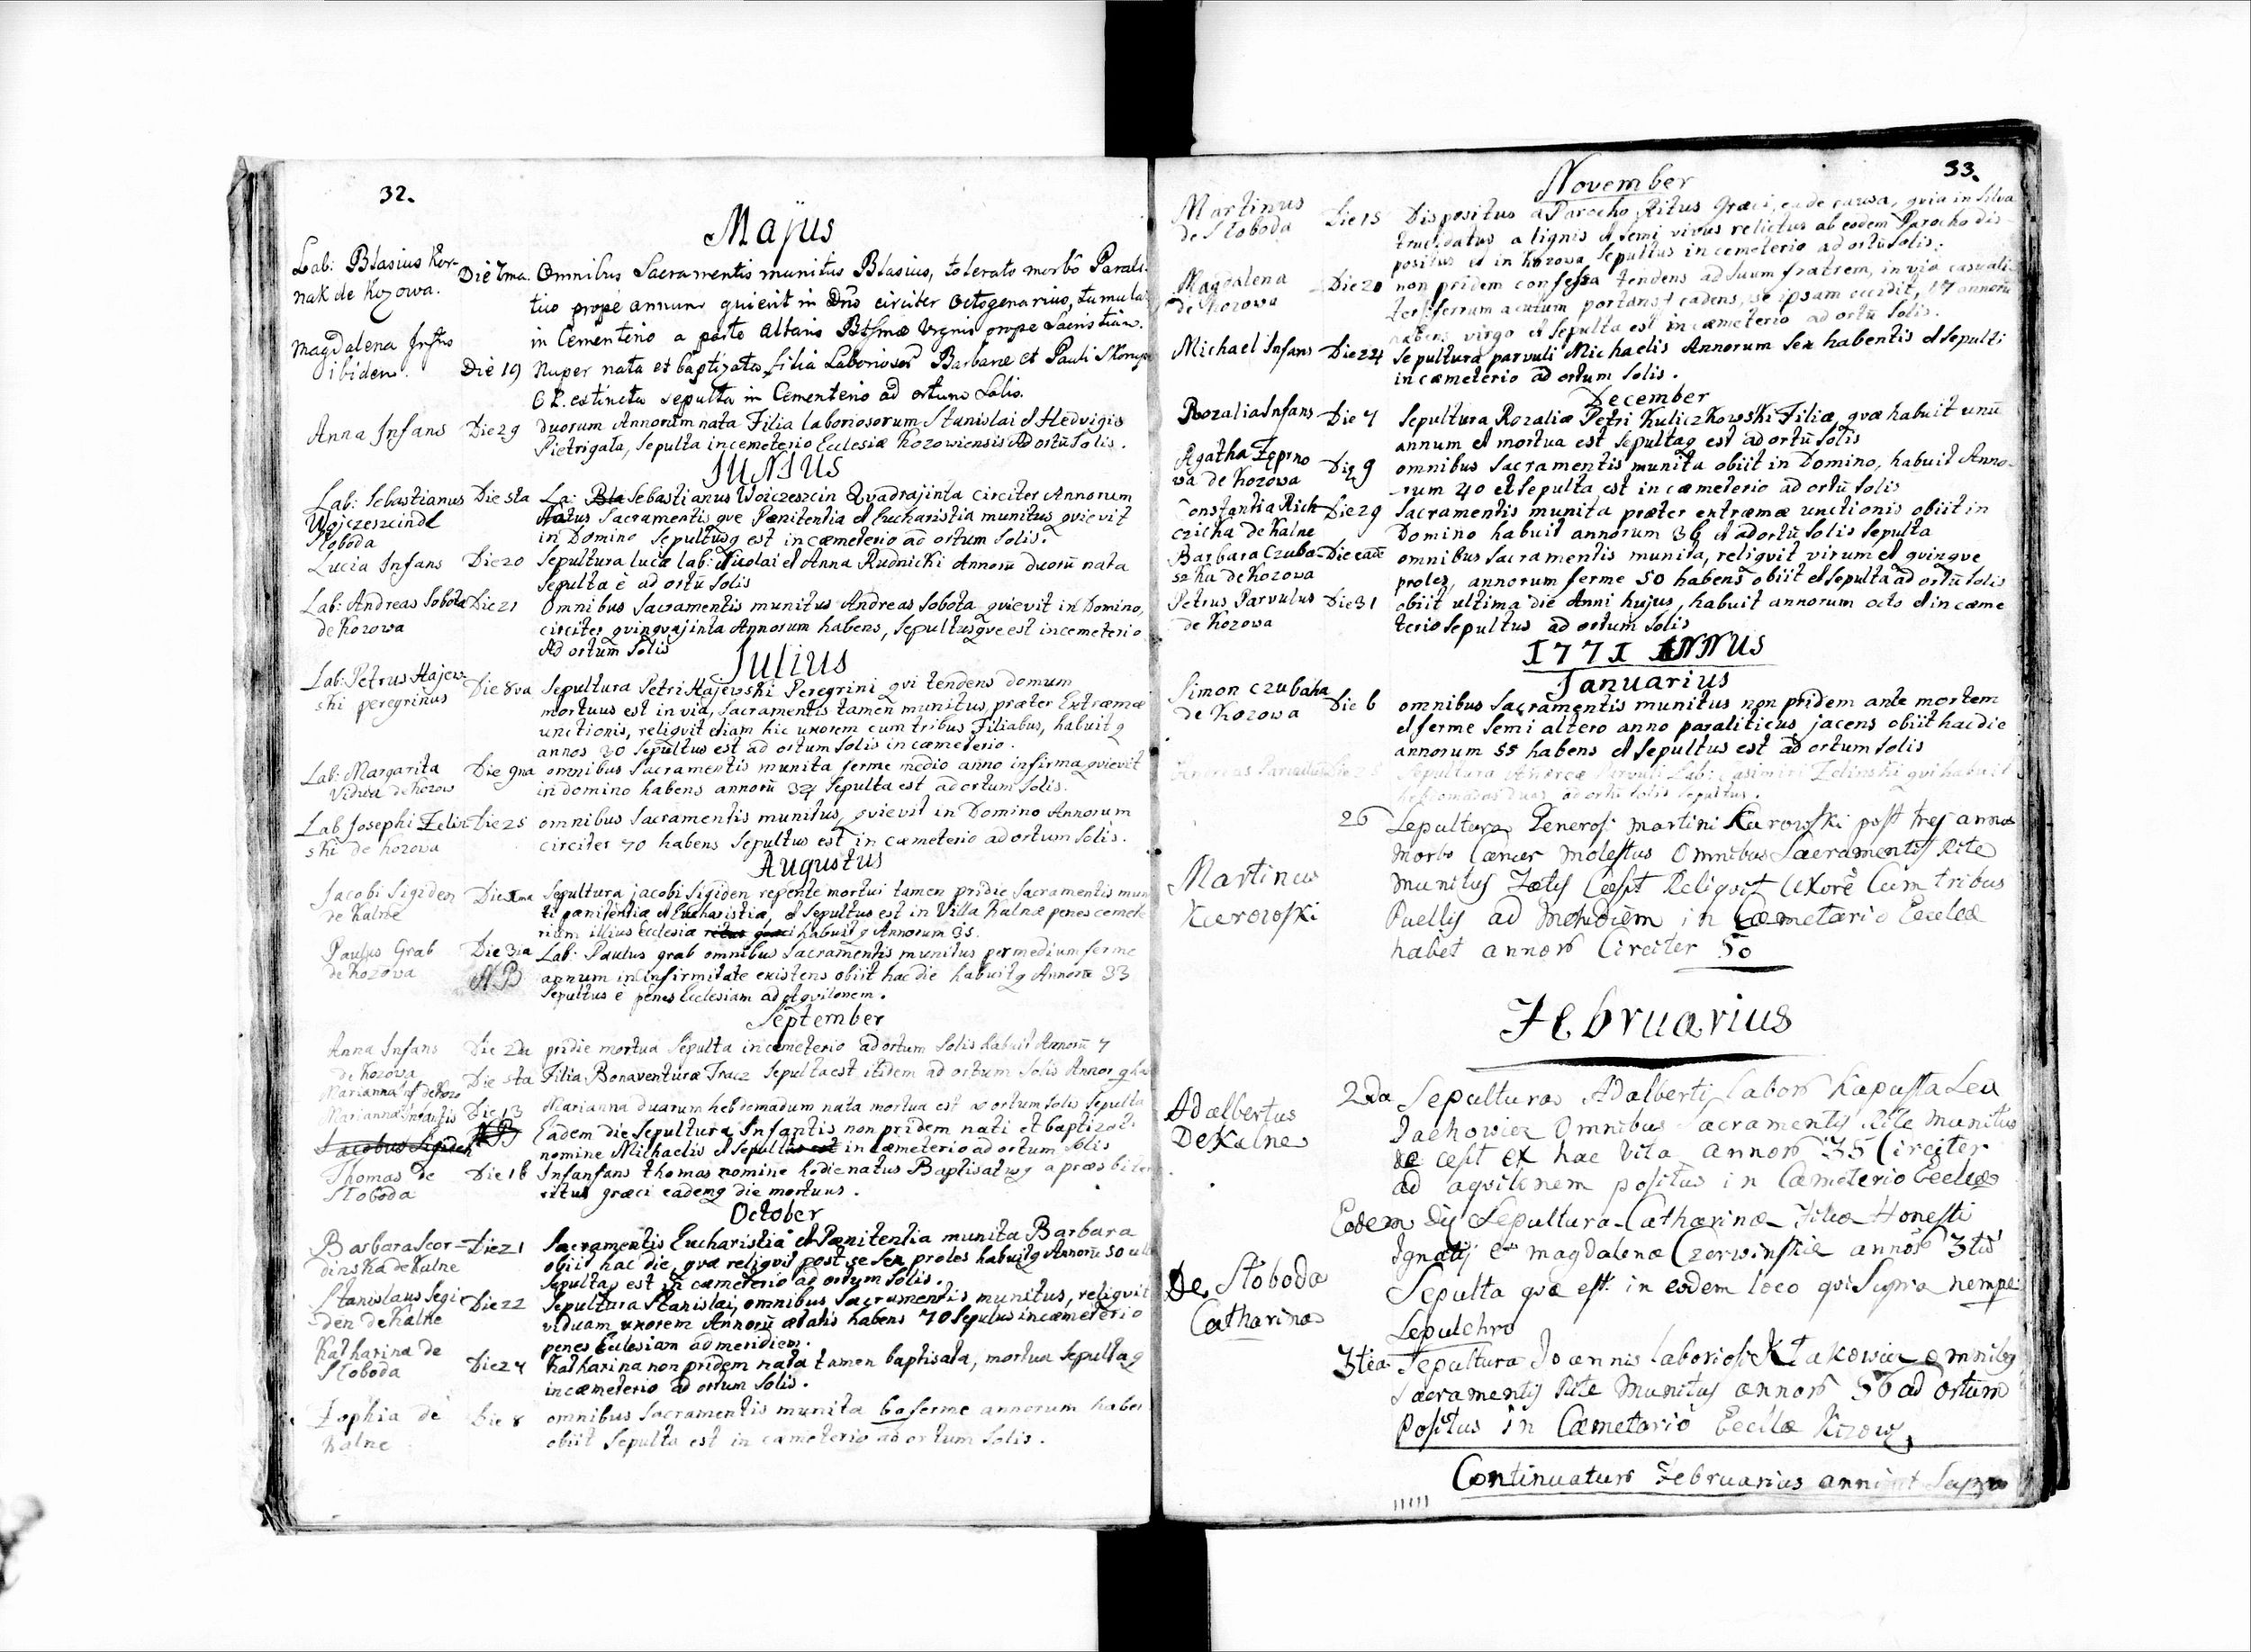 32.
Majus
Lab: Blasius Kor-
nak de Kozowa.
Die 7ma. Omnibus Sacramentis munitus Blasius, tolerato morbo Parali-
tico prope annum quievit in Dno circiter Octogenarius, tumula
in Cementerio a parte Altaris Btsmæ Vrgnis prope Sacristiam.
Magdalena Infns
ibidem.
Die 19 Nuper nata et baptizata filia Laboriosor Barbaræ et Pauli
extincta sepulta in Cementerio ad ortum Solis.
Anna Infans Die 29 duorum Annorum nata Filia laboriosorum Stanislai et Hedvigis
Pietrigata, Sepulta in cemeterio Ecclesiæ Kozowiensis Ad ortū Solis.
JUNIUS
Lab: Sebastianus
Wojczeszcin de
Sloboda
Die 5ta La: Bla Sebastianus Woiczeszcin Qvadrajinta circiter Annorum
Natus Sacramentis qve Pænitentia et Eucharistia munitus qvievit
in Domino Sepultusq est in cæmeterio ad ortum Solis.
Lucia Infans Die 20 Sepultura luciæ lab: Nicolai et Anna Rudnicki Annorū duorū nata
Sepulta ē ad ortū Solis
Lab: Andreas Sobota
de Kozowa
Die 21 Omnibus Sacramentis munitus Andreas Sobota qvievit in Domino,
circiter qvinqvajinta Annorum habens, Sepultusqve est in cemeterio
Ad ortum Solis
Julius
Lab: Petrus Hajew-
ski peregrinus
Die 8va Sepultura Petri Hajewski Peregrini qvi tendens domum
mortuus est in via, Sacramentis tamen munitus præter Extræmæ
unctionis, reliqvit etiam hic uxorem cum tribus Filiabus, habuit q
annos 30 Sepultus est ad ortum Solis in cæmeterio.
Lab: Margarita
Vidua de Kozow
Die 9na omnibus Sacramentis munita ferme medio anno infirma qvievit
in domino habens annorū 34 Sepulta est ad ortum Solis.
Lab Josephi Zelin
ski de Kozowa
Die 25 omnibus Sacramentis munitus, qvievit in Domino Annorum
circiter 70 habens Sepultus est in cæmeterio ad ortum Solis.
Augustus
Jacobi Sigiden
de Kalne
Die 1ma Sepultura jacobi Sigiden repente mortui tamen pridie Sacramentis mun
ti pænitentia et Eucharistia, et Sepultus est in Villa Kalnæ penes cemete
rium illius Ecclesia ritus græci habuit q Annorum 35.
Paulus Grab
de Kozowa
Die 3ia Lab: Paulus grab omnibus Sacramentis munitus per medium ferme
NB annum in infirmitate existens obiit hac die habuitq Annorū 33
Sepultus ē penes Ecclesiam ad Aqvilonem.
September
Anna Infans
de Kozowa
Die 2da pridie mortua Sepulta in cemeterio ad ortum Solis habuit Annorū 7
Marianna
Die 5ta Filia Bonaventuræ Tracz Sepulta est itidem ad ortum Solis Annor
Marianna Infantis Die 13 Marianna duarum hebdomadum nata mortua est ad ortum Solis Sepulta
Jacobus Sigiden NB Eadem die Sepultura Infantis non pridem nati et baptizati
nomine Michaelis et Sepultus est in cæmeterio ad ortum Solis
Thomas de
Sloboda
Die 16 Infanfans thomas nomine hodie natus Baptisatusq a præsbiter
ritus græci eademq die mortuus.
October
Barbara Scor-
dinska de Kalne
Die 21 Sacramentis Eucharistia et Pænitentia munita Barbara
obiit hac die, qvæ reliqvit post se Sex proles habuitq Annorū 50
Sepultaq est in cæmeterio ad ortum Solis.
Stanislaus Segi
den de Kalne
Die 22 Sepultura Stanislai, omnibus Sacramentis munitus, reliqvit
viduam uxorem Annorū ætatis habens 70 Sepulus in cæmeterio
penes Ecclesiam ad meridiem.
Katharina de
Sloboda
Die 24 Katharina non pridem nata tamen baptisata, mortua Sepultaq
in cæmeterio ad ortum Solis.
Zophia de
Kalne
Die 8 omnibus Sacramentis munita 60 ferme annorum habe
obiit Sepulta est in cæmeterio ad ortum Solis.
33.
November
Martinus
de Sloboda
Die 15 Dispositus a Parocho Ritus Græci, ea de causa, qvia in Silva
trucidatus a lignis et Semi vivus relictus ab eodem Parocho dis-
positus et in Kozowa Sepultus in cemeterio ad ortū Solis.
Magdalena
de Kozowa
Die 20 non pridem confessa tendens ad Suum fratrem, in via casuali
ter ferrum acutum portans et cadens, se ipsam occidit, 17 annorū
habens virgo et Sepulta est in cæmeterio ad ortū Solis.
Michael Infans Die 24 Sepultura parvuli Michaelis Annorum Sex habentis et Sepulti
in cæmeterio ad ortum Solis.
December
Rozalia Infans Die 7 Sepultura Rozaliæ Petri KuliczKowsKi Filiæ, qvæ habuit unū
annum et mortua est Sepultaq est ad ortū Solis
Agatha
wa de Kozowa
Die 9 omnibus Sacramentis munita obiit in Domino, habuit Anno-
rum 40 et Sepulta est in cæmeterio ad ortū Solis
Constantia Rich
czicha de Kalne
Die 29 Sacramentis munita præter extræmæ unctionis obiit in
Domino habuit annorum 36 et ad ortū Solis Sepulta
Barbara Czuba-
szka de Kozowa
Die eadē omnibus Sacramentis munita, reliqvit virum et qvinqve
proles, annorum ferme 50 habens obiit et Sepulta ad ortū Solis
Petrus Parvulus
de Kozowa
Die 31 obiit ultima die Anni hujus, habuit annorum octo et in cæme
terio Sepultus ad ortum Solis
1771 ANNUS
Januarius
Simon Czubaha
de Kozowa
Die 6 omnibus Sacramentis munitus non pridem ante mortem
et ferme Semi altero anno paraliticus jacens obiit hac die
annorum 55 habens et Sepultus est ad ortum Solis
Sepultura Andreæ Parvuli Lab: Casimiri Zelinski qvi habuit
hebdomadas duas ad ortū Solis Sepultus.
Martinus
Karowski
26 Sepultura Generosi Martini Karowski post tres annos
Morbo Cancer molestus Omnibus Sacramentis Rite
munitus cessit Reliqvit Uxorē Cum tribus
Puellis ad Meridiem in Cæmetario
habet annor Circiter 50
Februarius
Adalbertus
De Kalne
2da Sepultura Adalberti labor Kapusta
Omnibus Sacramentis Rite munitus
cessit ex hac Vita annor 35 Circiter
ad aqvilonem positus in Cæmeterio
De Sloboda
Catharina
Eodem Die Sepultura Catharinæ Filiæ Honesti
Ignatij et Magdalenæ Czerwinskie
Sepulta qvæ est in eodem loco qvi Supra nempe
Sepulchro
3tia Sepultura Joannis laboriosi Klakowicz omnibq
Sacramentis Rite Munitus annor 56 ad ortum
Positus in Cæmetario Kozow
Continuatur Februarius